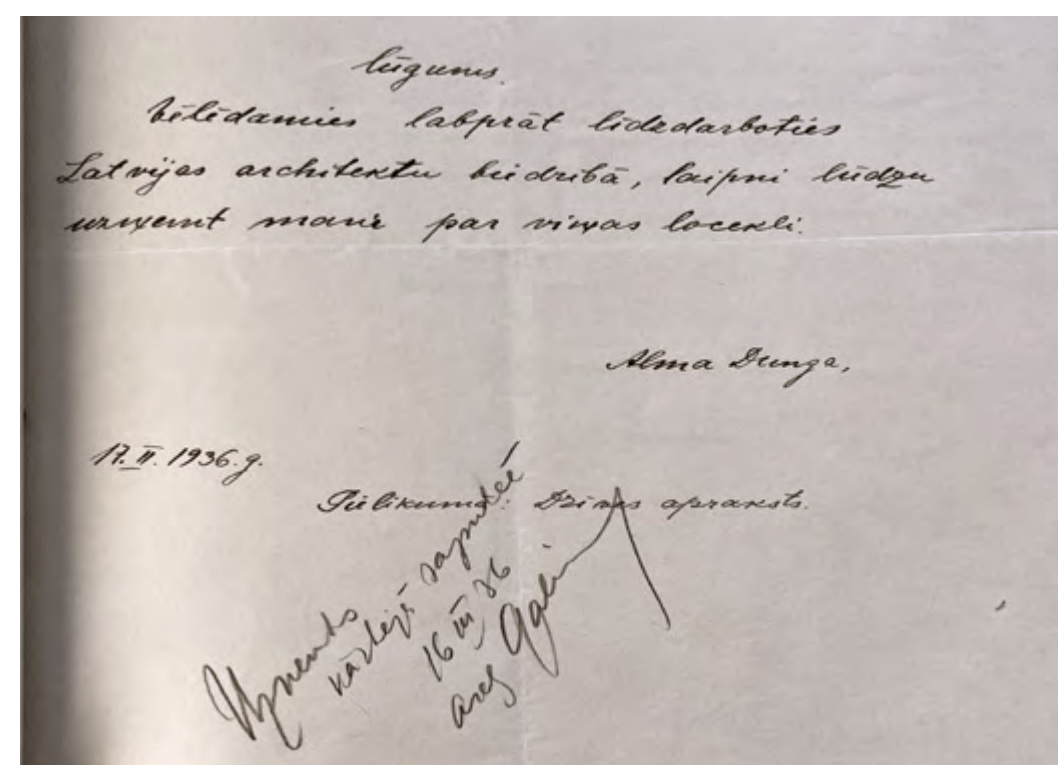 Lūgums.
Vēlēdamies labprāt līdzdarboties
Latvijas architektu biedrībā, laipni lūdzu
uzņemt mani par viņas locekli.
Alma Dunga,
17. II. 1936. g.
Pielikumā: Dzīves apraksts.
Uzņemts
kārtējā sapulcē
16 III 36